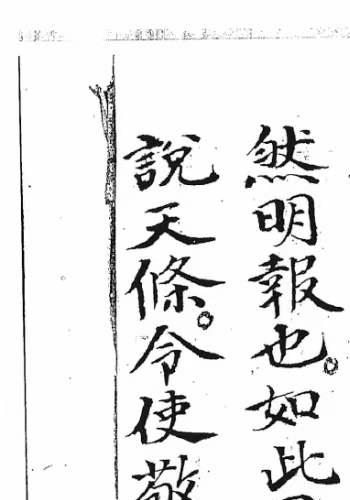 然明報也。如此
說天條。令使敬